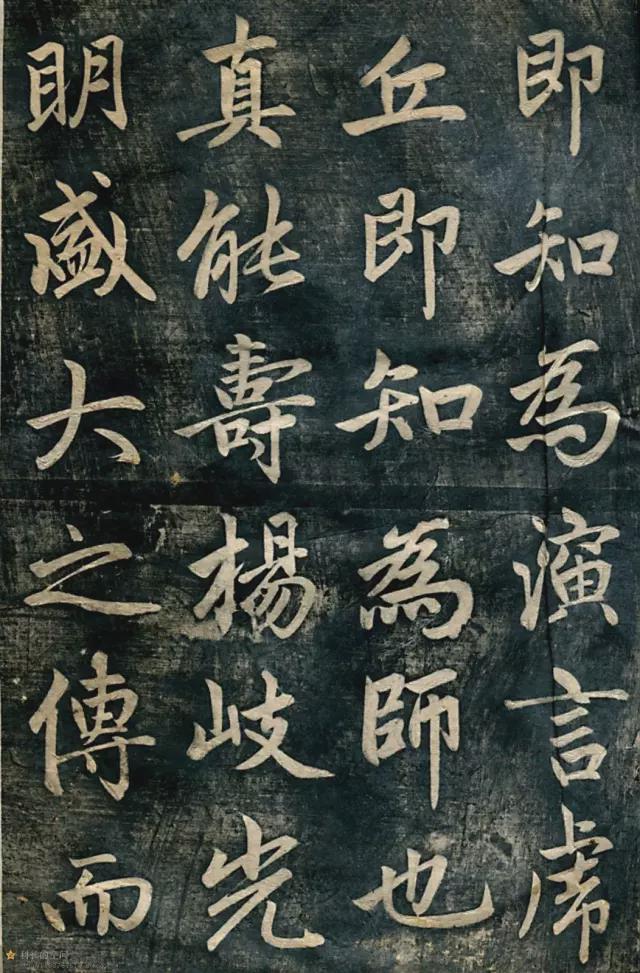 即知為演言虎
丘即知為師也
真能壽楊岐光
明盛大之傳而